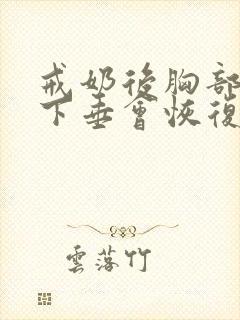 戒奶後胸部
下垂會恢復
雲落竹